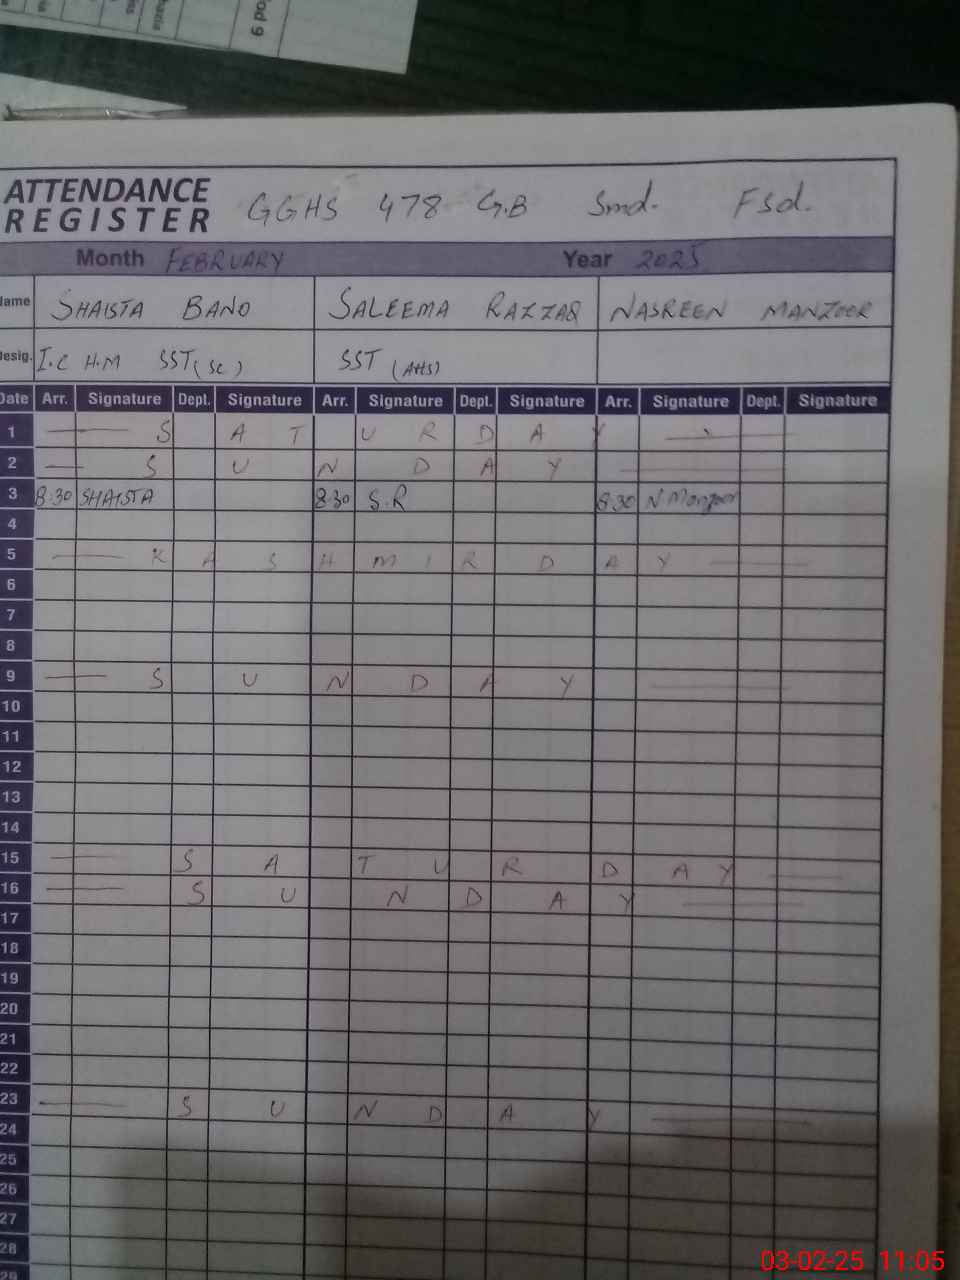 od 9
ATTENDANCE
REGISTER
GGHS 478 G.B Smd. Fsd.
Month FEBRUARY Year 2025
Name SHAISTA BANO SALEEMA RAZZAQ NASREEN MANZOOR
Desig. I.C H.M SST (SC) SST (Arts)
Date Arr. Signature Dept. Signature Arr. Signature Dept. Signature Arr. Signature Dept. Signature
1 S A T U R D A Y
2 S U N D A Y
3 8:30 SHAISTA 8:30 S.R 8:30 N Manzoor
4
5 K A S H M I R D A Y
6
7
8
9 S U N D A Y
10
11
12
13
14
15 S A T U R D A Y
16 S U N D A Y
17
18
19
20
21
22
23 S U N D A Y
24
25
26
27
28
29
03-02-25 11:05